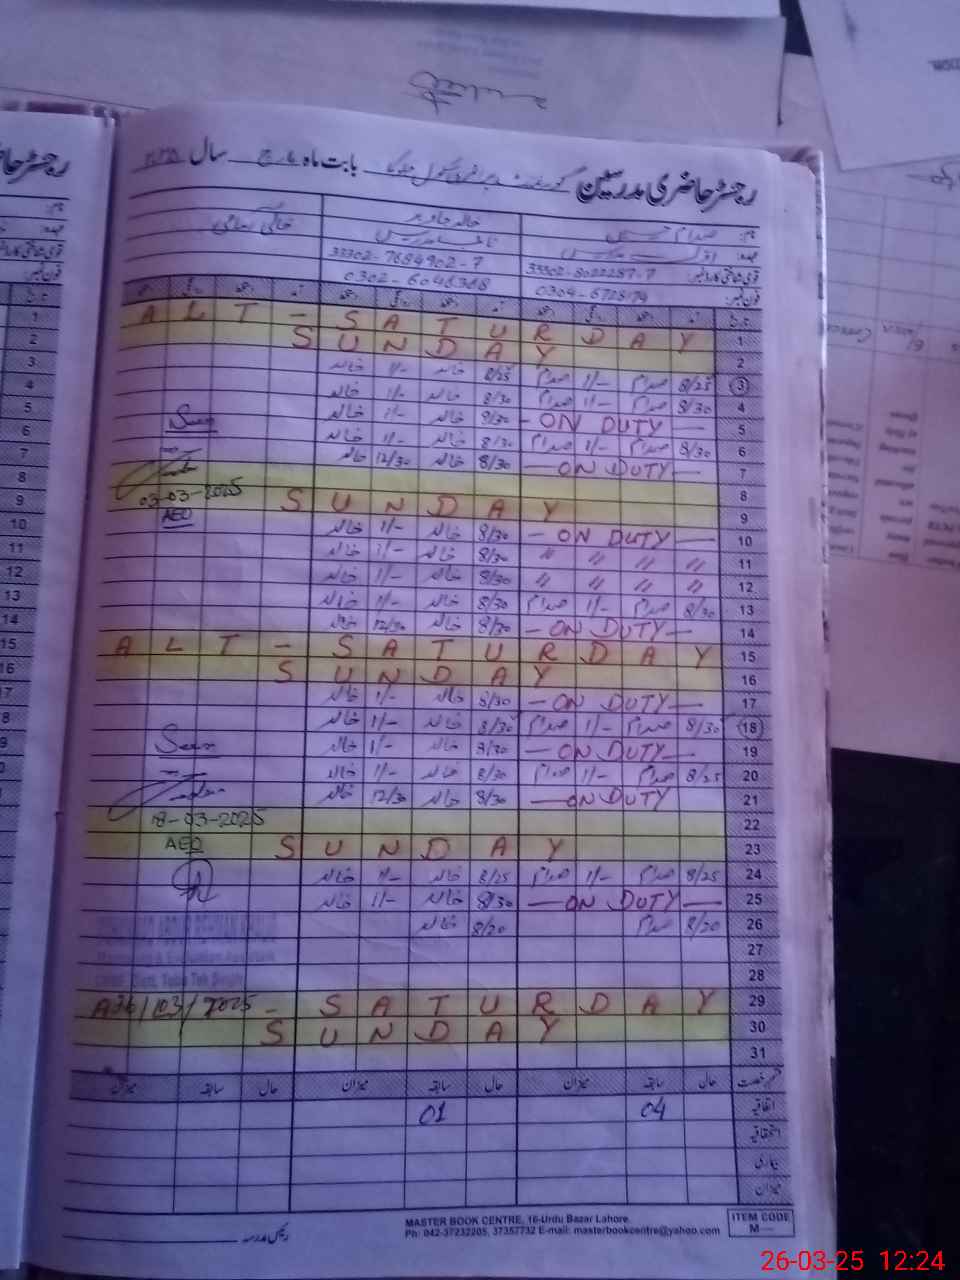 رجسٹر حاضری مدرسین گورنمنٹ پرائمری سکول بابت ماہ مارچ سال
نام: صدام حسین خالد جاوید خالی اسامی
عہدہ:
قومی شناختی کارڈ نمبر 33302-8022287-7 33302-7684902-7
فون نمبر: 0304-6728174 0302-6046368
تاریخ
1 ALT - SATURDAY
2 SUNDAY
3 8/25 صدام 1/- صدام 8/25 خالد 1/- خالد
4 8/30 صدام 1/- صدام 8/30 خالد 1/- خالد
5 - ON DUTY - 8/30 خالد 1/- خالد
6 8/30 صدام 1/- صدام 8/30 خالد 1/- خالد
7 - ON DUTY - 8/30 خالد 12/30 خالد
8
03-03-2025
9 SUNDAY
AEO
10 - ON DUTY - 8/30 خالد 1/- خالد
11 " " " " 8/30 خالد 1/- خالد
12 " " " " 8/30 خالد 1/- خالد
13 8/30 صدام 1/- صدام 8/30 خالد 1/- خالد
14 - ON DUTY - 8/30 خالد 12/30 خالد
15 ALT - SATURDAY
16 SUNDAY
17 - ON DUTY - 8/30 خالد 1/- خالد
18 8/30 صدام 1/- صدام 8/30 خالد 1/- خالد
19 - ON DUTY - 8/30 خالد 1/- خالد
20 8/25 صدام 1/- صدام 8/30 خالد 1/- خالد
21 - ON DUTY 8/30 خالد 12/30 خالد
22
18-03-2025
23 SUNDAY
AEO
24 8/25 صدام 1/- صدام 8/25 خالد 1/- خالد
25 - ON DUTY - 8/30 خالد 1/- خالد
26 8/20 صدام 8/20 خالد
27
28
Toba Tek Singh
29 - SATURDAY
26/03/2025
30 SUNDAY
31
قسم رخصت حال سابقہ میزان حال سابقہ میزان حال سابقہ میزان
اتفاقیہ 04 01
استحقاقیہ
بیماری
میزان
رئیس مدرسہ
MASTER BOOK CENTRE, 16-Urdu Bazar Lahore.
Ph: 042-37232205, 37357732 E-mail: masterbookcentre@yahoo.com
ITEM CODE
M
26-03-25 12:24